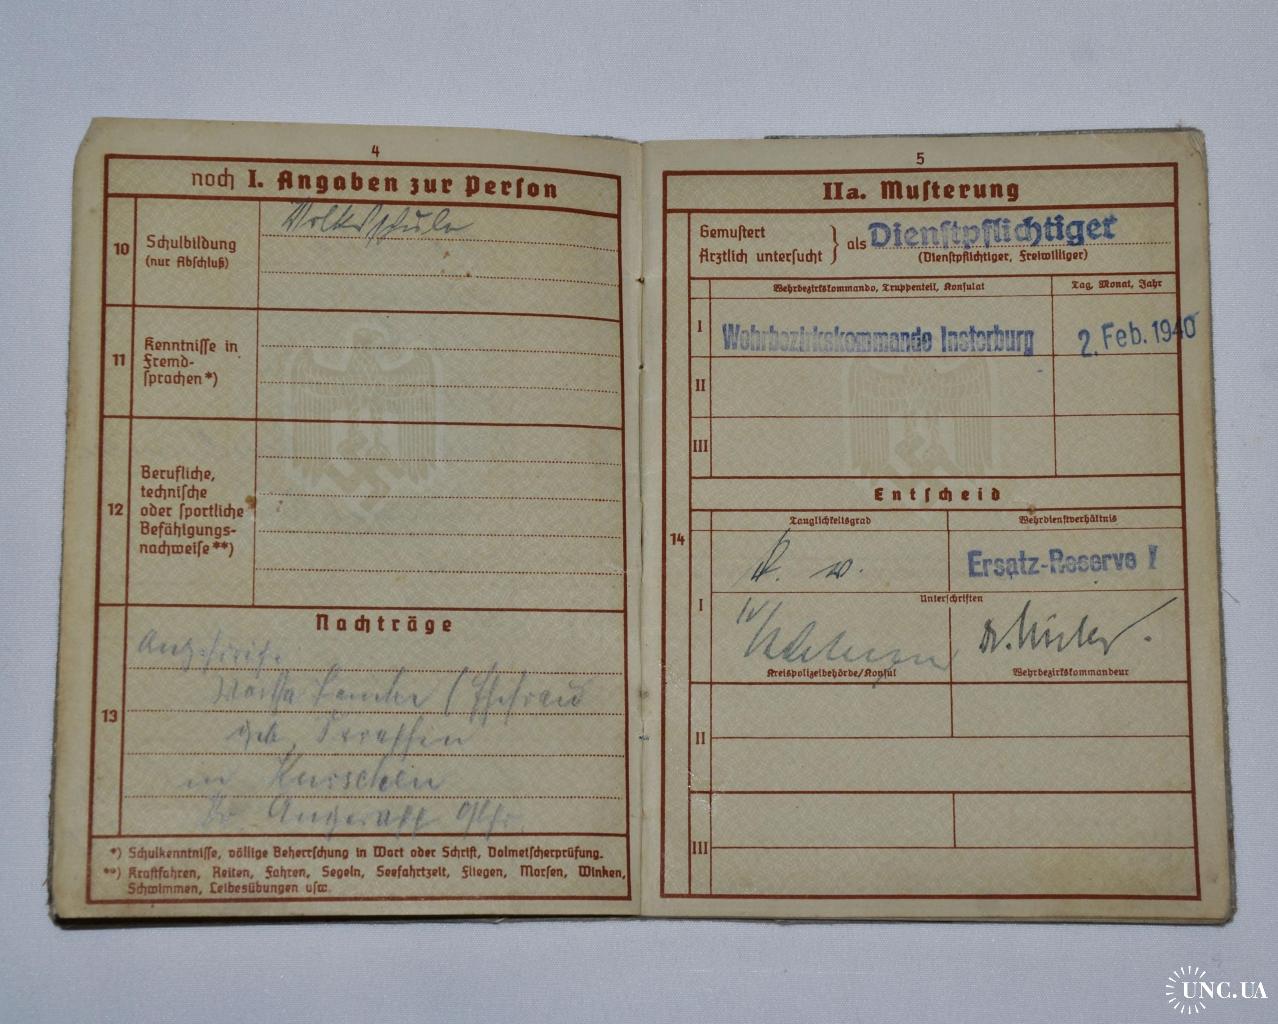 4
noch I. Angaben zur Person
10
Schulbildung
(nur Abschluß)
Volksschule
11
Kenntnisse in
Fremd-
sprachen*)
12
Berufliche,
technische
oder sportliche
Befähigungs-
nachweise**)
Nachträge
13
(Ehefrau
geb.
in
*) Schulkenntnisse, völlige Beherrschung in Wort oder Schrift, Dolmetscherprüfung.
**) Kraftfahren, Reiten, Fahren, Segeln, Seefahrtzeit, Fliegen, Morsen, Winken,
Schwimmen, Leibesübungen usw.
5
IIa. Musterung
Gemustert
Ärztlich untersucht } als Dienstpflichtiger
(Dienstpflichtiger, Freiwilliger)
Wehrbezirkskommando, Truppenteil, Konsulat
Tag, Monat, Jahr
I
Wehrbezirkskommando Insterburg
2. Feb. 1940
II
III
Entscheid
14
Tauglichkeitsgrad
Wehrdienstverhältnis
k. v.
Ersatz-Reserve I
I
Unterschriften
Kreispolizeibehörde/Konsul
Wehrbezirkskommandeur
II
III
UNC.UA